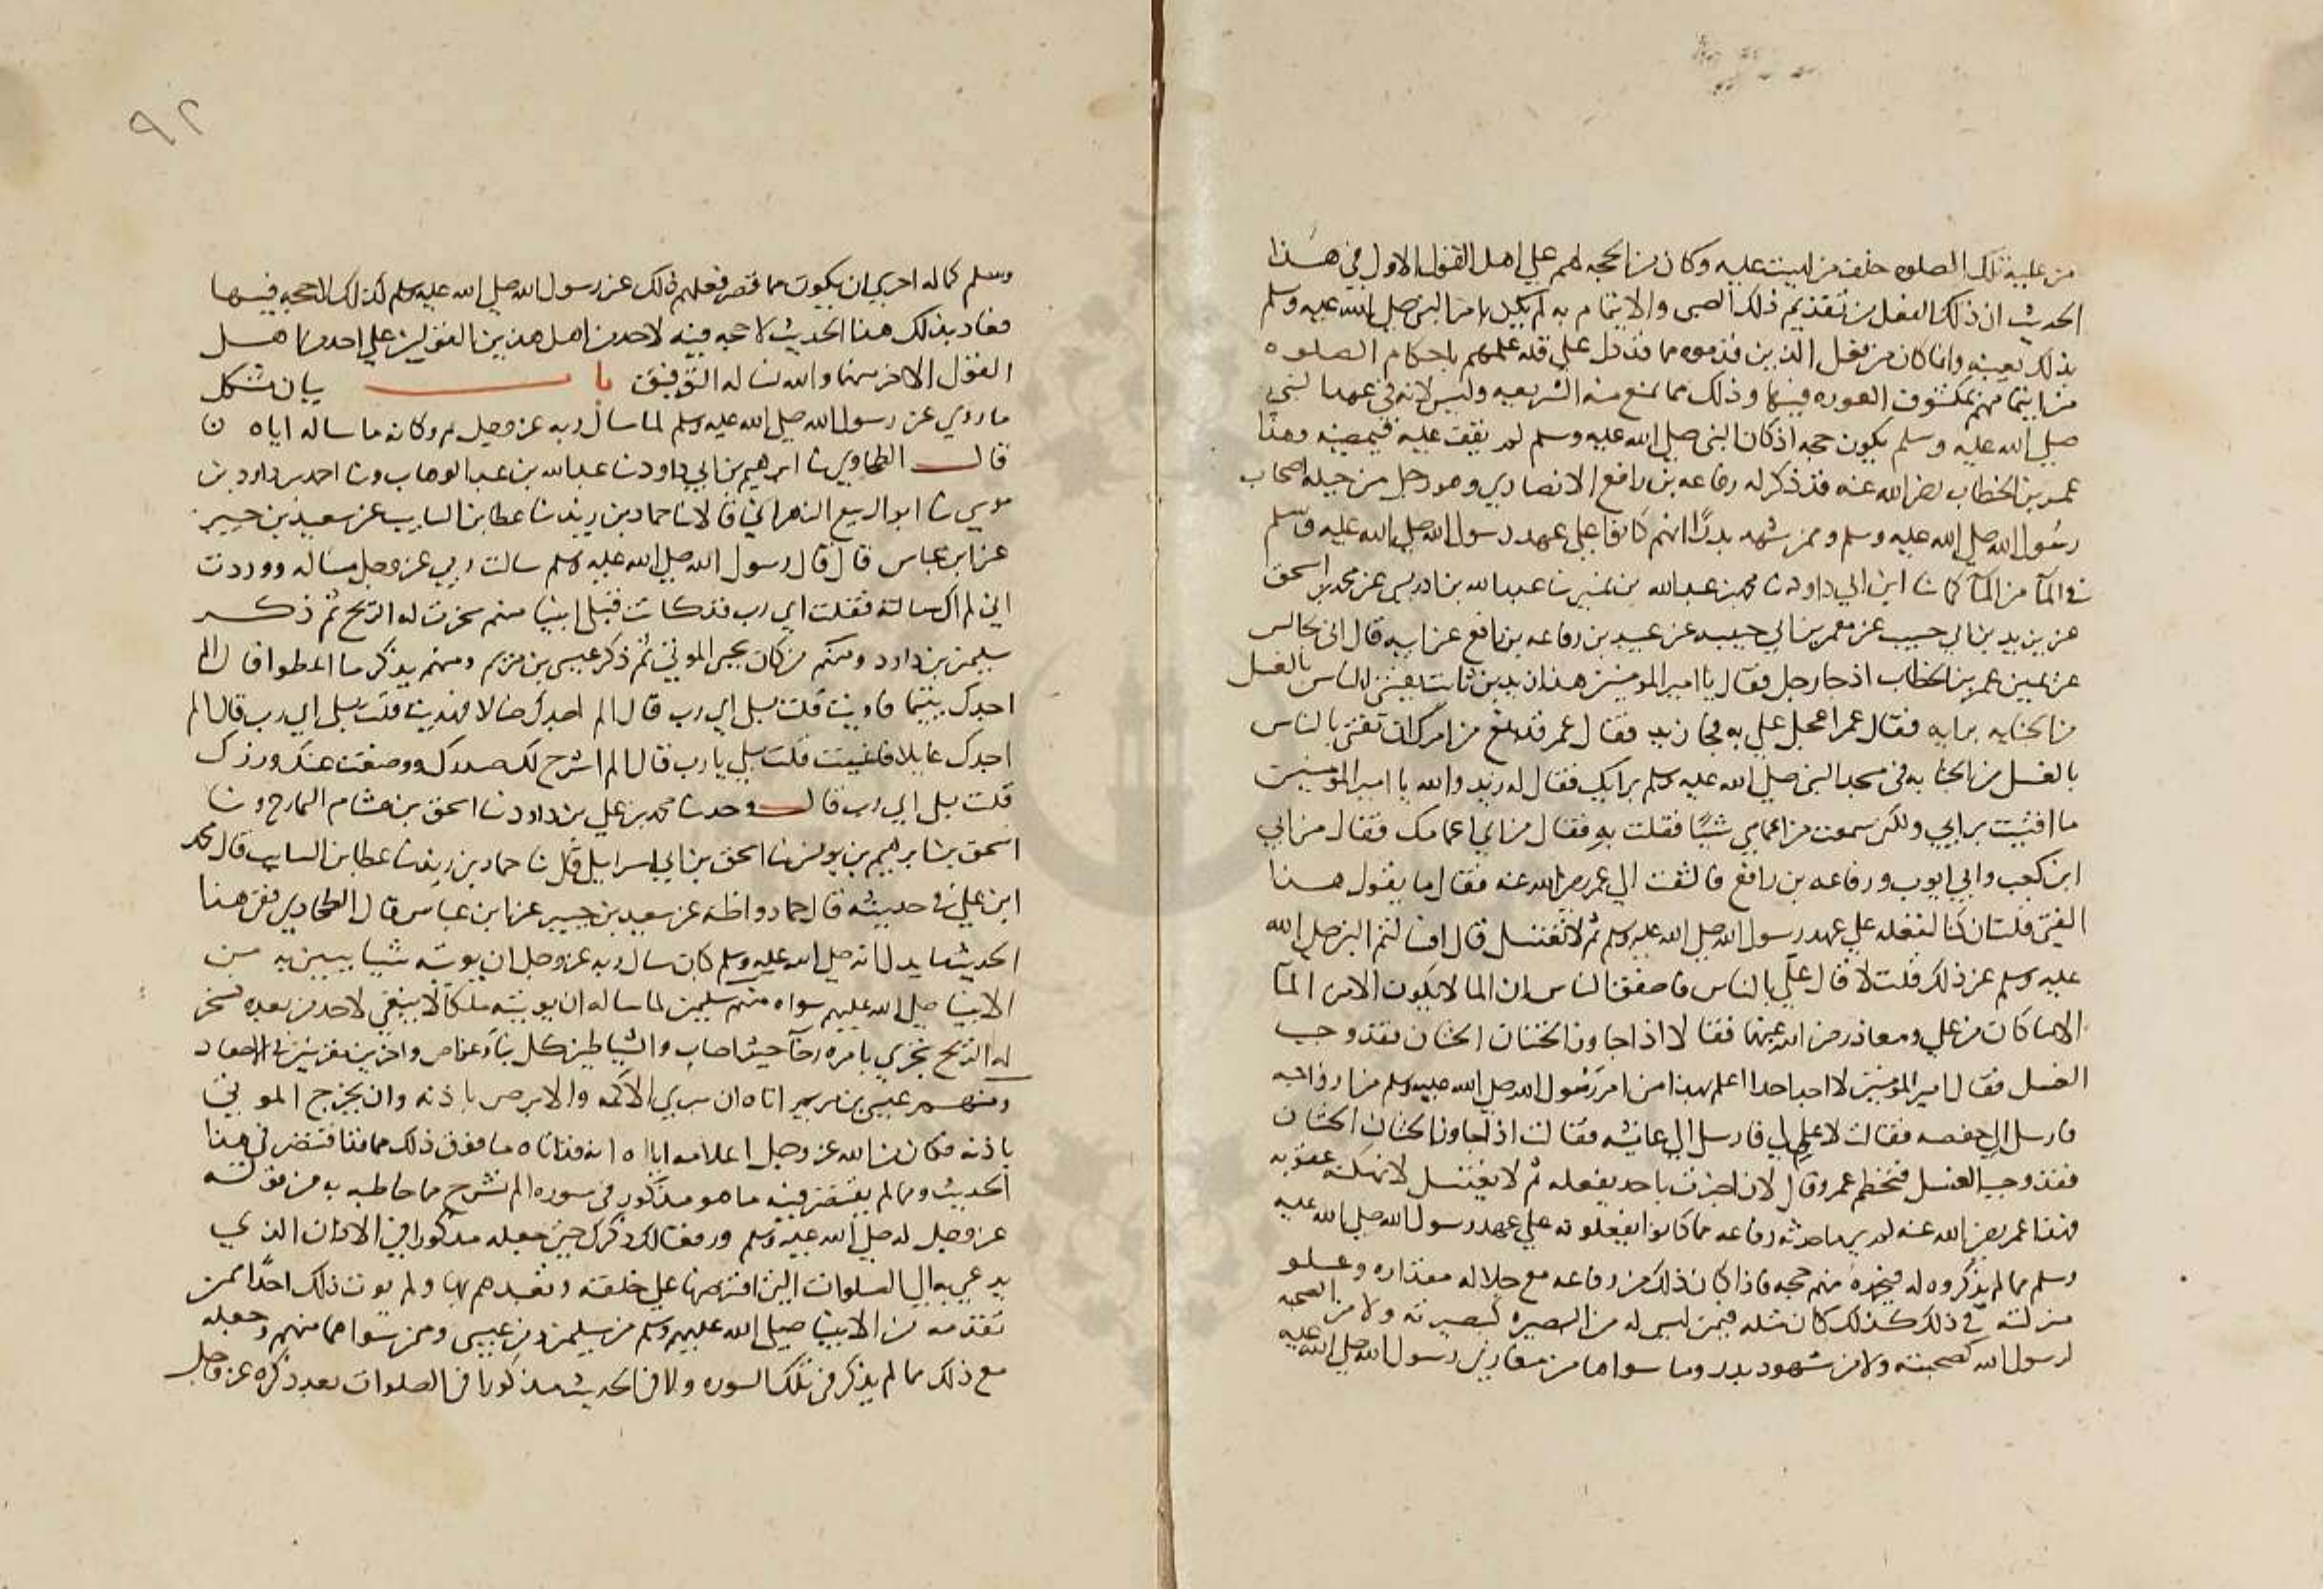 من عليه تلك الصلوه خلف من ليست عليه وكان من الحجه لهم علي اهل القول الاول في هذا
الحديث ان ذلك الفعل من تقديم ذلك الصبي والايتمام به لم يكن بامر النبي صلي الله عليه وسلم
بذلك بعينه وانما كان من فعل الذين قدموه مما قد دل علي قله علمهم باحكام الصلوه
من ايتمامهم بمكشوف العوره فيها وذلك مما تمنع منه الشريعه وليس لانه في عهد النبي
صلي الله عليه وسلم يكون حجه اذ كان النبي صلي الله عليه وسلم لم يقف عليه فيمضيه وهذا
عمر بن الخطاب رضي الله عنه قد ذكر له رفاعه بن رافع الانصاري وهو رجل من جله اصحاب
رسول الله صلي الله عليه وسلم وممن شهد بدرا انهم كانوا علي عهد رسول الله صلي الله عليه وسلم
في المآ من المآ كما نا ابن ابي داود نا محمد بن عبد الله بن نمير نا عبد الله بن ادريس عن محمد بن اسحق
عن يزيد بن ابي حبيب عن معمر بن ابي حبيبه عن عبيد بن رفاعه بن رافع عن ابيه قال اني لجالس
عن يمين عمر بن الخطاب اذ جا رجل فقال يا امير المومنين هذا زيد بن ثابت يفتي الناس بالغسل
من الجنابه برايه فقال عمر اعجل علي به فجا زيد فقال عمر قد بلغ من امرك ان تفتي بالناس
بالغسل من الجنابه في مسجد النبي صلي الله عليه وسلم برايك فقال له زيد والله يا امير المومنين
ما افتيت برايي ولكن سمعت من اعمامي شيئا فقلت به فقال من اي اعمامك فقال من ابي
ابن كعب وابي ايوب ورفاعه بن رافع فالتفت الي عمر رضي الله عنه فقال ما يقول هذا
الفتي قلت ان كنا لنفعله علي عهد رسول الله صلي الله عليه وسلم ثم لا نغتسل قال افسالتم النبي صلي الله
عليه وسلم عن ذلك قلت لا قال علي بالناس فاصفق الناس ان الما لا يكون الا من المآ
الا ما كان من علي ومعاذ رضي الله عنهما فقالا اذا جاوز الختان الختان فقد وجب
الغسل فقال امير المومنين لا اجد احدا اعلم بهذا من امر رسول الله صلي الله عليه وسلم من ازواجه
فارسل الي حفصه فقالت لا علم لي فارسل الي عائشه فقالت اذا جاوز الختان الختان
فقد وجب الغسل فتحطم عمر وقال لان اخبرت باحد يفعله ثم لا يغتسل لانهكنه عقوبه
فهذا عمر رضي الله عنه لم ير ما حدثه رفاعه مما كانوا يفعلونه علي عهد رسول الله صلي الله عليه
وسلم مما لم يذكروه له فيحمده منهم حجه فاذا كان ذلك من رفاعه مع جلاله مقداره وعلو
منزلته في ذلك كذلك كان مثله فيمن ليس له من البصيره كبصيرته ولا من الصحبه
لرسول الله كصحبته ولا من شهود بدر وما سواها من مغازي رسول الله صلي الله عليه
٩٢
وسلم كما له احري ان يكون مما قصر فعلهم ذلك عن رسول الله صلي الله عليه وسلم كذلك لا حجه فيها
فعاد بذلك هذا الحديث لا حجه فيه لاحد من اهل هذين القولين علي احد من اهل
القول الاخر منهما والله نساله التوفيق باب بيان مشكل
ما روي عن رسول الله صلي الله عليه وسلم لما سال ربه عز وجل وكانه ما ساله اياه ن
قال الطحاوي نا ابرهيم بن ابي داود نا عبد الله بن عبد الوهاب ونا احمد بن داود بن
موسي نا ابو الربيع الزهراني قالا نا حماد بن زيد نا عطا بن السايب عن سعيد بن جبير
عن ابن عباس قال قال رسول الله صلي الله عليه وسلم سالت ربي عز وجل مساله وودت
اني لم اكن سالته فقلت اي رب قد كانت قبلي انبيا منهم سخرت له الريح ثم ذكر
سليمن بن داود ومنهم من كان يحيي الموتي ثم ذكر عيسي بن مريم ومنهم يذكر ما اعطوا قال الم
اجدك يتيما فاويت قلت بلي اي رب قال الم اجدك ضالا فهديت قلت بلي اي رب قال الم
اجدك عايلا فاغنيت قلت بلي يا رب قال الم اشرح لك صدرك ووضعت عنك وزرك
قلت بلي اي رب قال وحدثنا محمد بن علي بن داود نا اسحق بن هشام التمار ح ونا
اسحق بن ابرهيم بن يونس نا اسحق بن ابي اسرايل قال نا حماد بن زيد نا عطا بن السايب قال محمد
ابن علي في حديثه قال حماد واظنه عن سعيد بن جبير عن ابن عباس قال الطحاوي ففي هذا
الحديث ما يدل انه صلي الله عليه وسلم كان سال ربه عز وجل ان يوتيه شيا يبين به من
الانبيا صلي الله عليهم سواه منهم سليمن لما ساله ان يوتيه ملكا لا ينبغي لاحد من بعده سخر
له الريح تجري بامره رخآ حيث اصاب والشياطين كل بنآ وغواص واخرين مقرنين في الاصفاد
ومنهم عيسي بن مريم اتاه ان يبري الاكمه والابرص باذنه وان يخرج الموتي
باذنه فكان من الله عز وجل اعلامه اياه انه قد اتاه ما فوق ذلك مما قد اقتضر في هذا
الحديث ومما لم يقتضر فيه ما هو مذكور في سوره الم نشرح مما خاطبه به من قوله
عز وجل له صلي الله عليه وسلم ورفعنا لك ذكرك حين جعله مذكورا في الاذان الذي
يدعي به الي الصلوات التي افترضها علي خلقه وتعبدهم بها ولم يوت ذلك احدا ممن
تقدمه من الانبيا صلي الله عليهم وسلم من سليمن ومن عيسي وممن سواهما منهم وجعله
مع ذلك مما لم يذكر في تلك السوره ولا في الحديث مذكورا في الصلوات بعد ذكره عز وجل